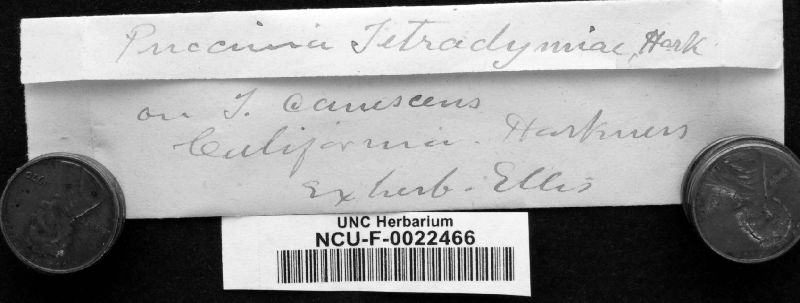 Puccinia Tetradymiae, Hark
on T. canescens
California. Harkness
Ex herb. Ellis
UNC Herbarium
NCU-F-0022466